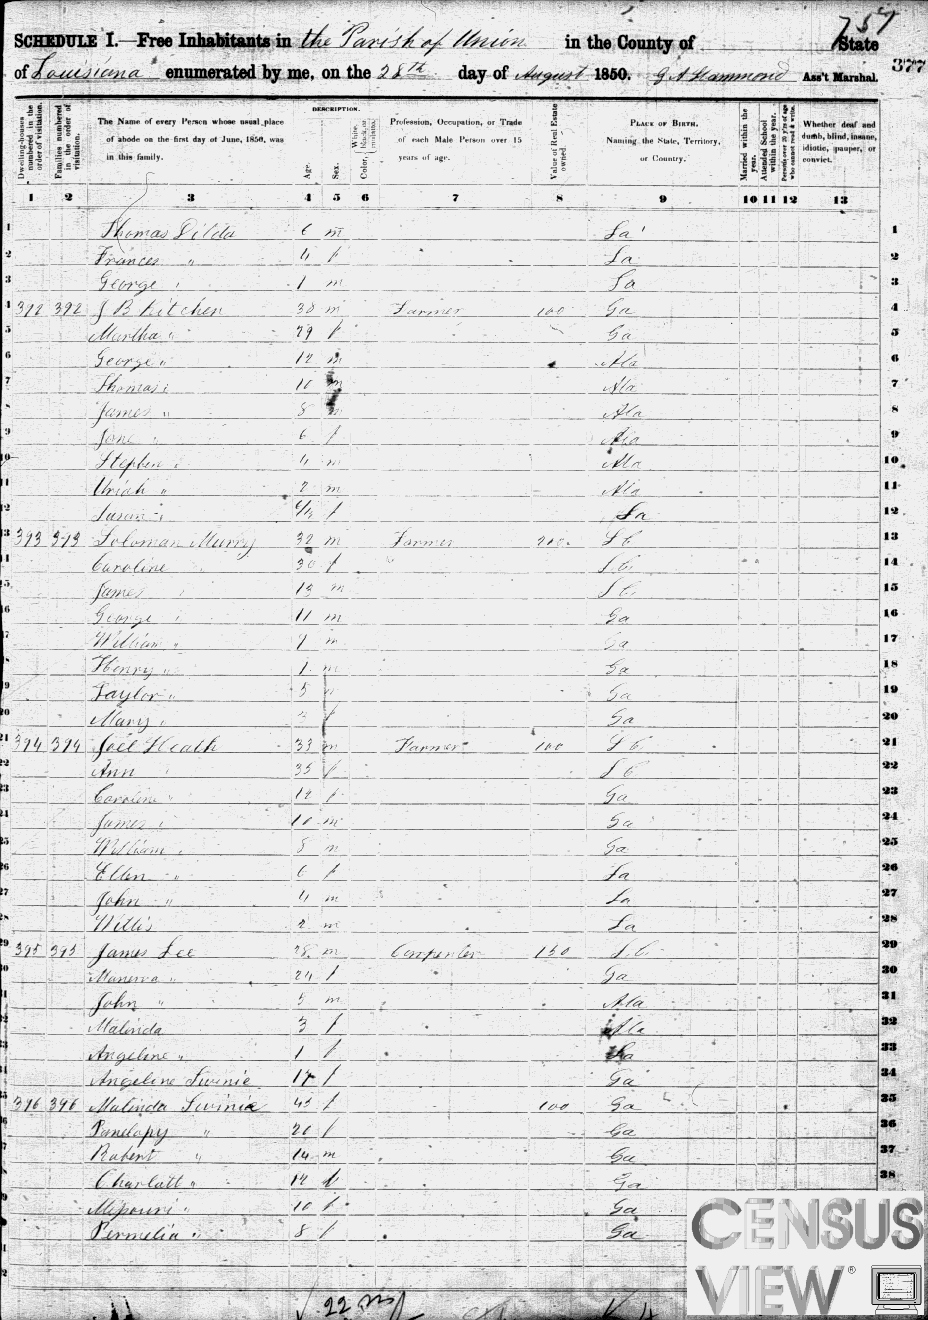 757
SCHEDULE I.—Free Inhabitants in the Parish of Union in the County of State
of Louisiana enumerated by me, on the 28th day of August 1850. G A Hammond Ass't Marshal. 377
Dwelling-houses numbered in the order of visitation.
Families numbered in the order of visitation.
The Name of every Person whose usual place of abode on the first day of June, 1850, was in this family.
DESCRIPTION.
Age.
Sex.
Color, White, black, or mulatto.
Profession, Occupation, or Trade of each Male Person over 15 years of age.
Value of Real Estate owned.
PLACE OF BIRTH. Naming the State, Territory, or Country.
Married within the year.
Attended School within the year.
Persons over 20 y'rs of age who cannot read & write.
Whether deaf and dumb, blind, insane, idiotic, pauper, or convict.
1 2 3 4 5 6 7 8 9 10 11 12 13
1 Thomas Dilda 6 m La 1
2 Frances " 4 f La 2
3 George " 1 m La 3
4 392 392 J B Kitchen 38 m Farmer 100 Ga 4
5 Martha " 29 f Ga 5
6 George " 12 m Ala 6
7 Thomas " 10 m Ala 7
8 James " 8 m Ala 8
9 Jane " 6 f Ala 9
10 Stephen " 4 m Ala 10
11 Uriah " 2 m Ala 11
12 Susan " f La 12
13 393 393 Soloman Murry 32 m Farmer 200 S C 13
14 Caroline " 30 f S C 14
15 James " 13 m S C 15
16 George " 11 m Ga 16
17 William " 9 m Ga 17
18 Henry " m Ga 18
19 Taylor " 5 m Ga 19
20 Mary " 3 f Ga 20
21 394 394 Joel Heath 33 m Farmer 100 S C 21
22 Ann " 35 f S C 22
23 Caroline " 12 f Ga 23
24 James " 10 m Ga 24
25 William " 8 m Ga 25
26 Ellen " 6 f La 26
27 John " 4 m La 27
28 Willis 2 m La 28
29 395 395 James Lee 28 m Carpenter 150 S C 29
30 Manerva " 24 f Ga 30
31 John " 5 m Ala 31
32 Malinda 3 f Ala 32
33 Angeline " 1 f La 33
34 Angeline Swinie 17 f Ga 34
35 396 396 Malinda Swinie 45 f 100 Ga 35
Penelapy " 20 f Ga 36
Robert " 14 m Ga 37
Charlott " 12 f Ga 38
Missouri " 10 f Ga
Permelia " 8 f Ga
22 m
CENSUS
VIEW®